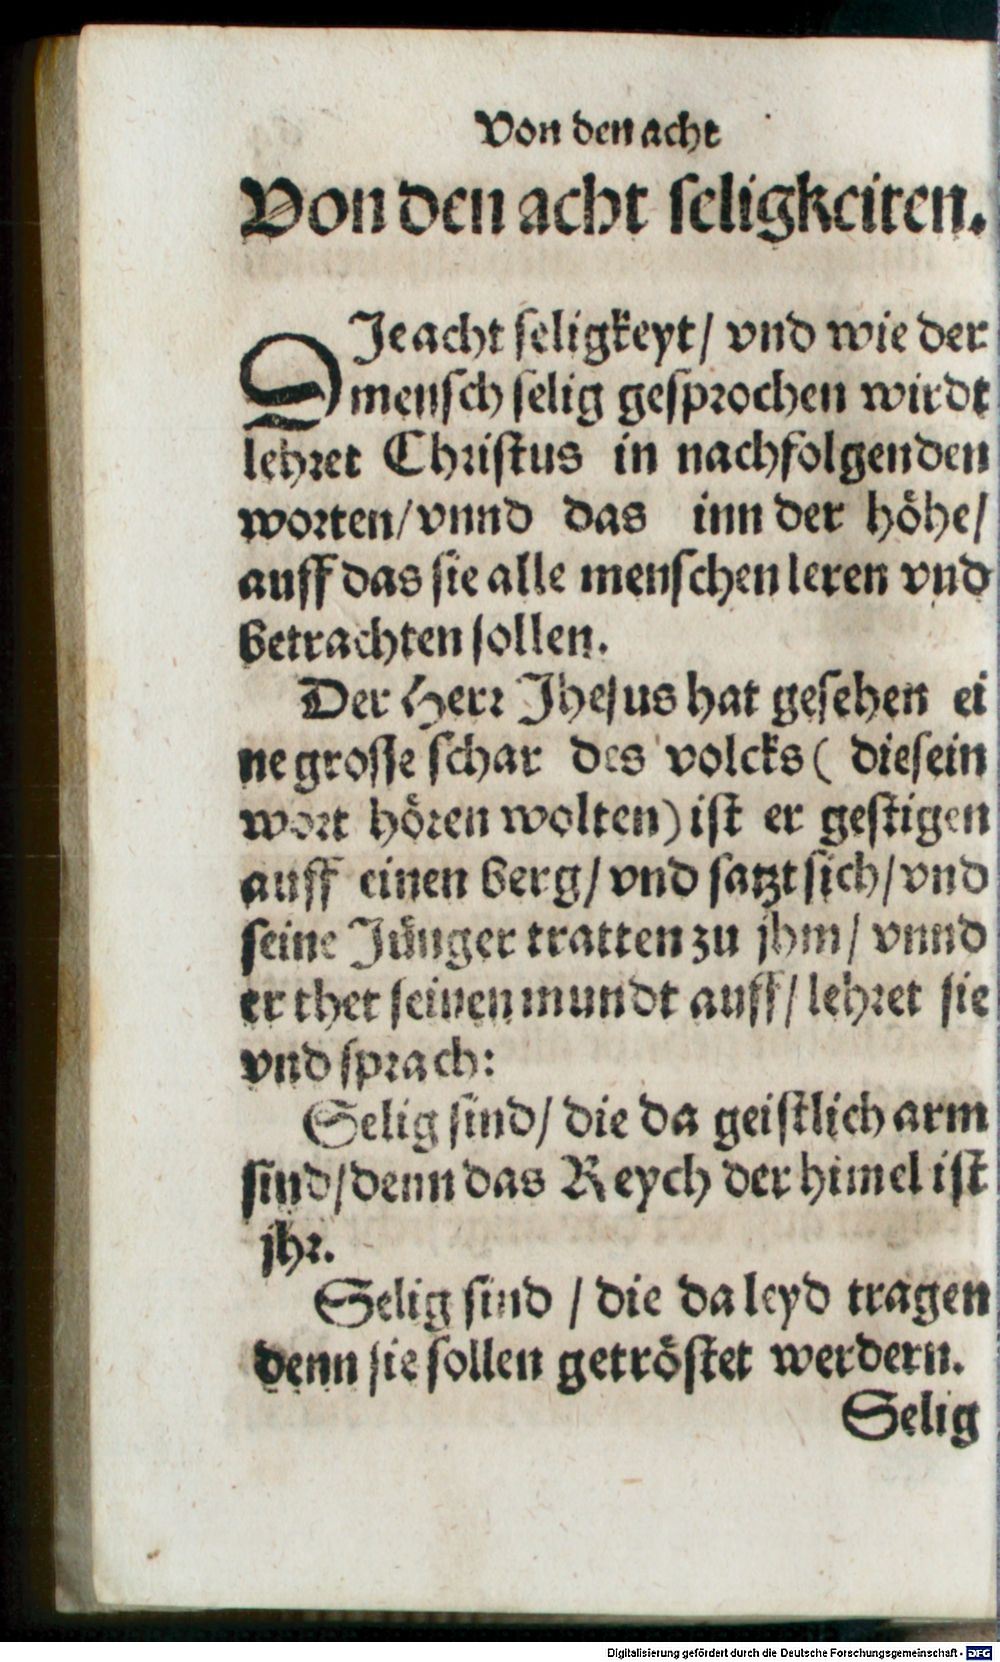 Von den acht
Von den acht seligkeiten.
DJe acht seligkeyt/ vnd wie der
mensch selig gesprochen wirdt
lehret Christus in nachfolgenden
worten/vnnd das inn der höhe/
auff das sie alle menschen leren vnd
betrachten sollen.
Der Herr Jhesus hat gesehen ei
ne grosse schar des volcks ( die sein
wort hören wolten) ist er gestigen
auff einen berg/ vnd satzt sich/ vnd
seine Jünger tratten zu jhm/ vnnd
er thet seinen mundt auff/ lehret sie
vnd sprach:
Selig sind/ die da geistlich arm
sind/denn das Reych der himel ist
jhr.
Selig sind / die da leyd tragen
denn sie sollen getröstet werdern.
Selig
Digitalisierung gefördert durch die Deutsche Forschungsgemeinschaft - DFG